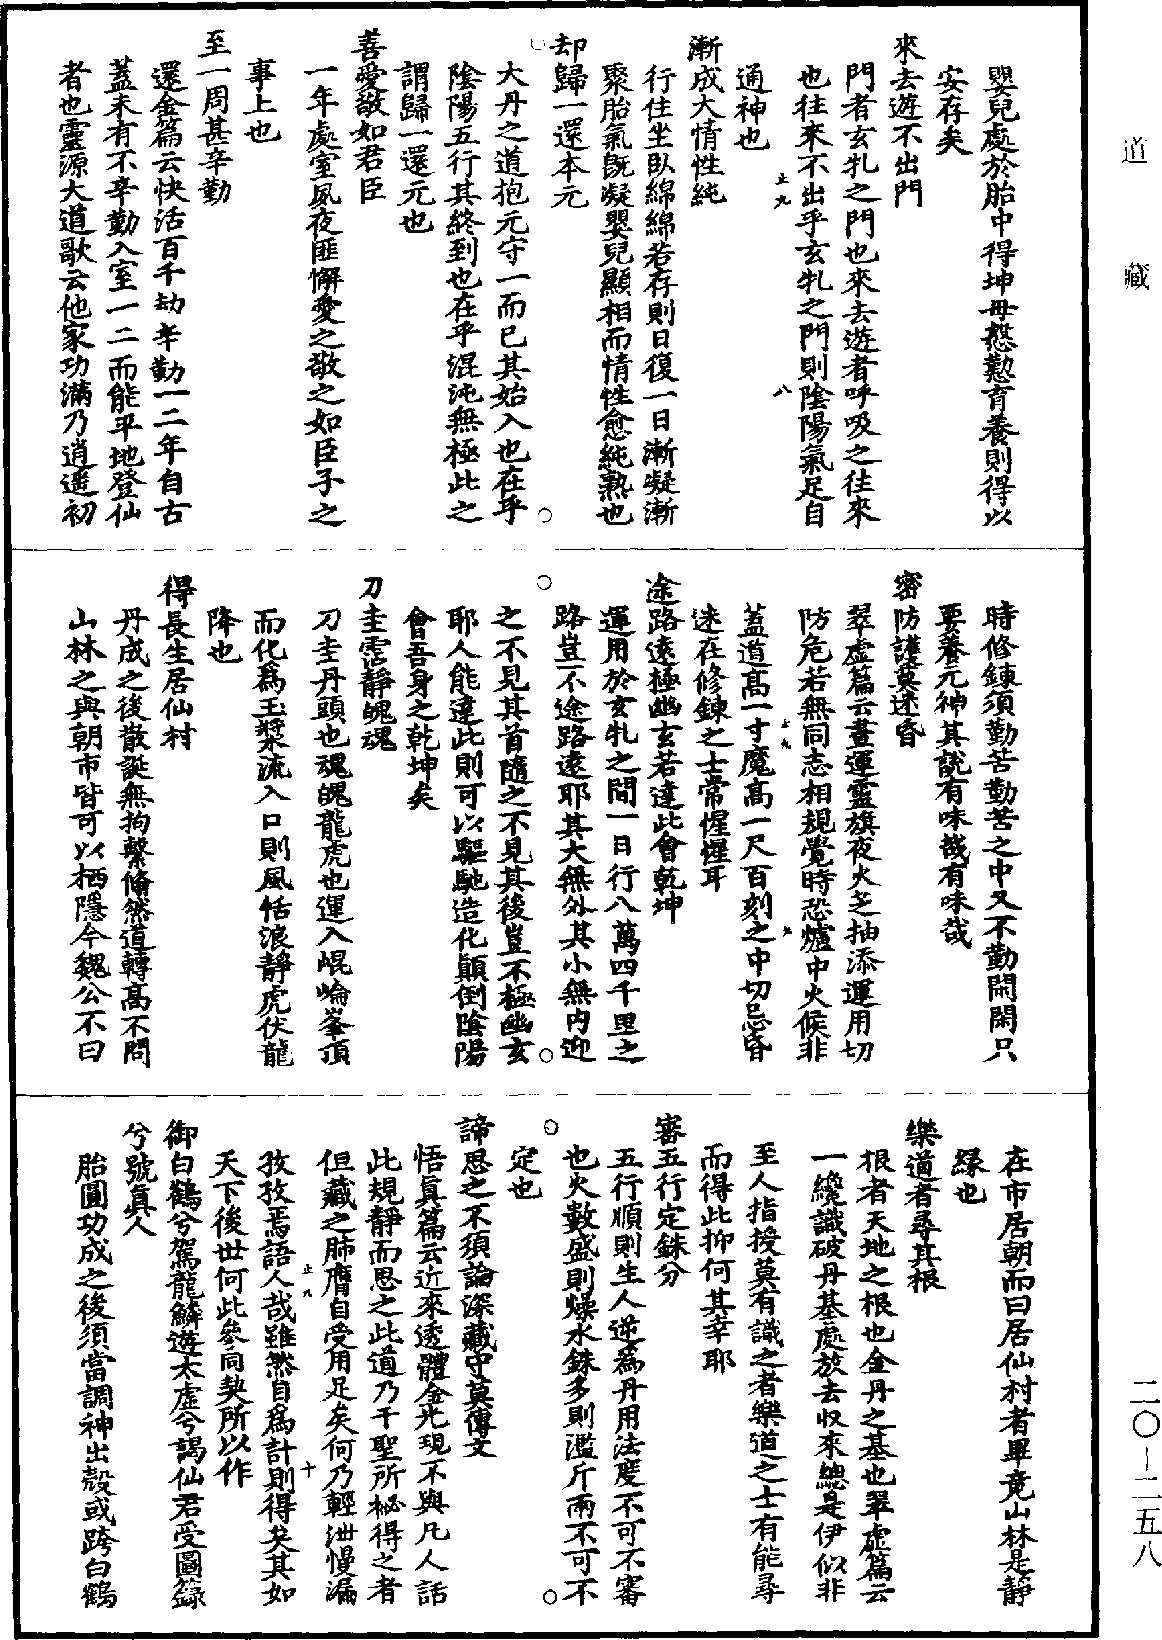 道藏
嬰兒處於胎中得坤母慇懃育養則得以
安存矣
來去遊不出門
門者玄牝之門也來去遊者呼吸之往來
也往來不出乎玄牝之門則陰陽氣足自
止九
八
通神也
漸成大情性純
行住坐臥綿綿若存則日復一日漸凝漸
聚胎氣既凝嬰兒顯相而情性愈純熟也
却歸一還本元
大丹之道抱元守一而已其始入也在乎
陰陽五行其終到也在乎混沌無極此之
謂歸一還元也
善愛敬如君臣
一年處室夙夜匪懈愛之敬之如臣子之
事上也
至一周甚辛勤
還金篇云快活百千劫辛勤一二年自古
蓋未有不辛勤入室一二而能平地登仙
者也靈源大道歌云他家功滿乃逍遥初
時修鍊須勤苦勤苦之中又不勤閑閑只
要養元神其說有味哉有味哉
密防護莫迷昏
翠虛篇云晝運靈旗夜火芝抽添運用切
防危若無同志相規覺時恐爐中火候非
止九
九
蓋道高一寸魔高一尺百刻之中切忌昏
迷在修鍊之士常惺惺耳
途路遠極幽玄若達此會乾坤
運用於玄牝之間一日行八萬四千里之
路豈不途路遠耶其大無外其小無內迎
之不見其首隨之不見其後豈不極幽玄
耶人能達此則可以驅馳造化顛倒陰陽
會吾身之乾坤矣
刀圭霑靜魄魂
刀圭丹頭也魂魄龍虎也運入崐崘峯頂
而化為玉漿流入口則風恬浪靜虎伏龍
降也
得長生居仙村
丹成之後散誕無拘繫翛然道轉高不問
山林之與朝市皆可以栖隱今魏公不曰
在市居朝而曰居仙村者畢竟山林是靜
緣也
樂道者尋其根
根者天地之根也金丹之基也翠虛篇云
一纔識破丹基處放去收來總是伊似非
至人指授莫有識之者樂道之士有能尋
而得此抑何其幸耶
審五行定銖分
五行順則生人逆為丹用法度不可不審
也火數盛則燥水銖多則濫斤兩不可不
定也
諦思之不須論深藏守莫傳文
悟真篇云近來透體金光現不與凡人話
此規靜而思之此道乃千聖所祕得之者
但藏之肺膺自受用足矣何乃輕泄慢漏
孜孜焉語人哉雖然自為計則得矣其如
止九
十
天下後世何此參同契所以作
御白鶴兮駕龍鱗遊太虛兮謁仙君受圖籙
兮號真人
胎圓功成之後須當調神出殼或跨白鶴
二〇-二五八